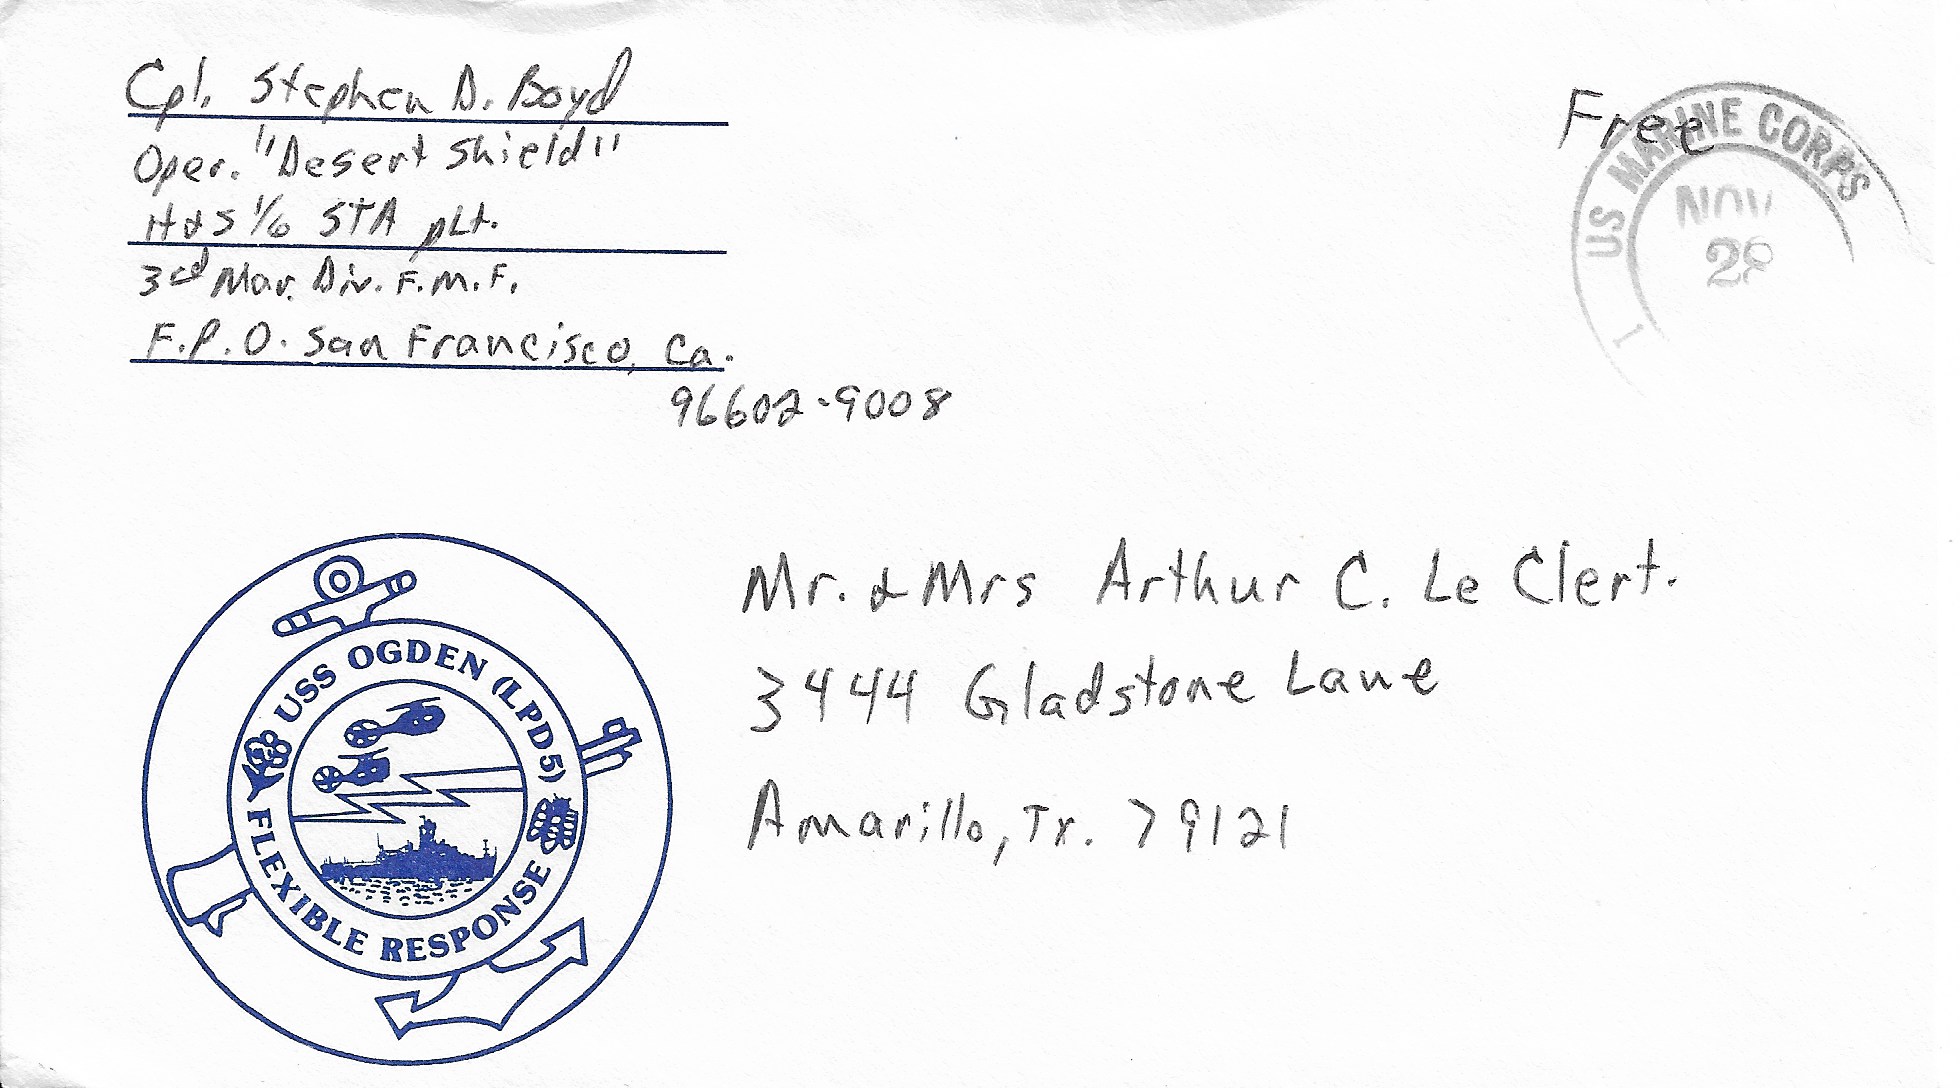 Cpl. Stephen D. Boyd
Oper. "Desert Shield"
H&S 1/6 STA pLt.
3rd Mar. Div. F.M.F.
F.P.O. San Francisco, Ca.
96602-9008
Free
US MARINE CORPS
NOV
28
1
Mr. & Mrs Arthur C. Le Clert.
3444 Gladstone Lane
Amarillo, Tx. 79121
USS OGDEN (LPD5)
FLEXIBLE RESPONSE